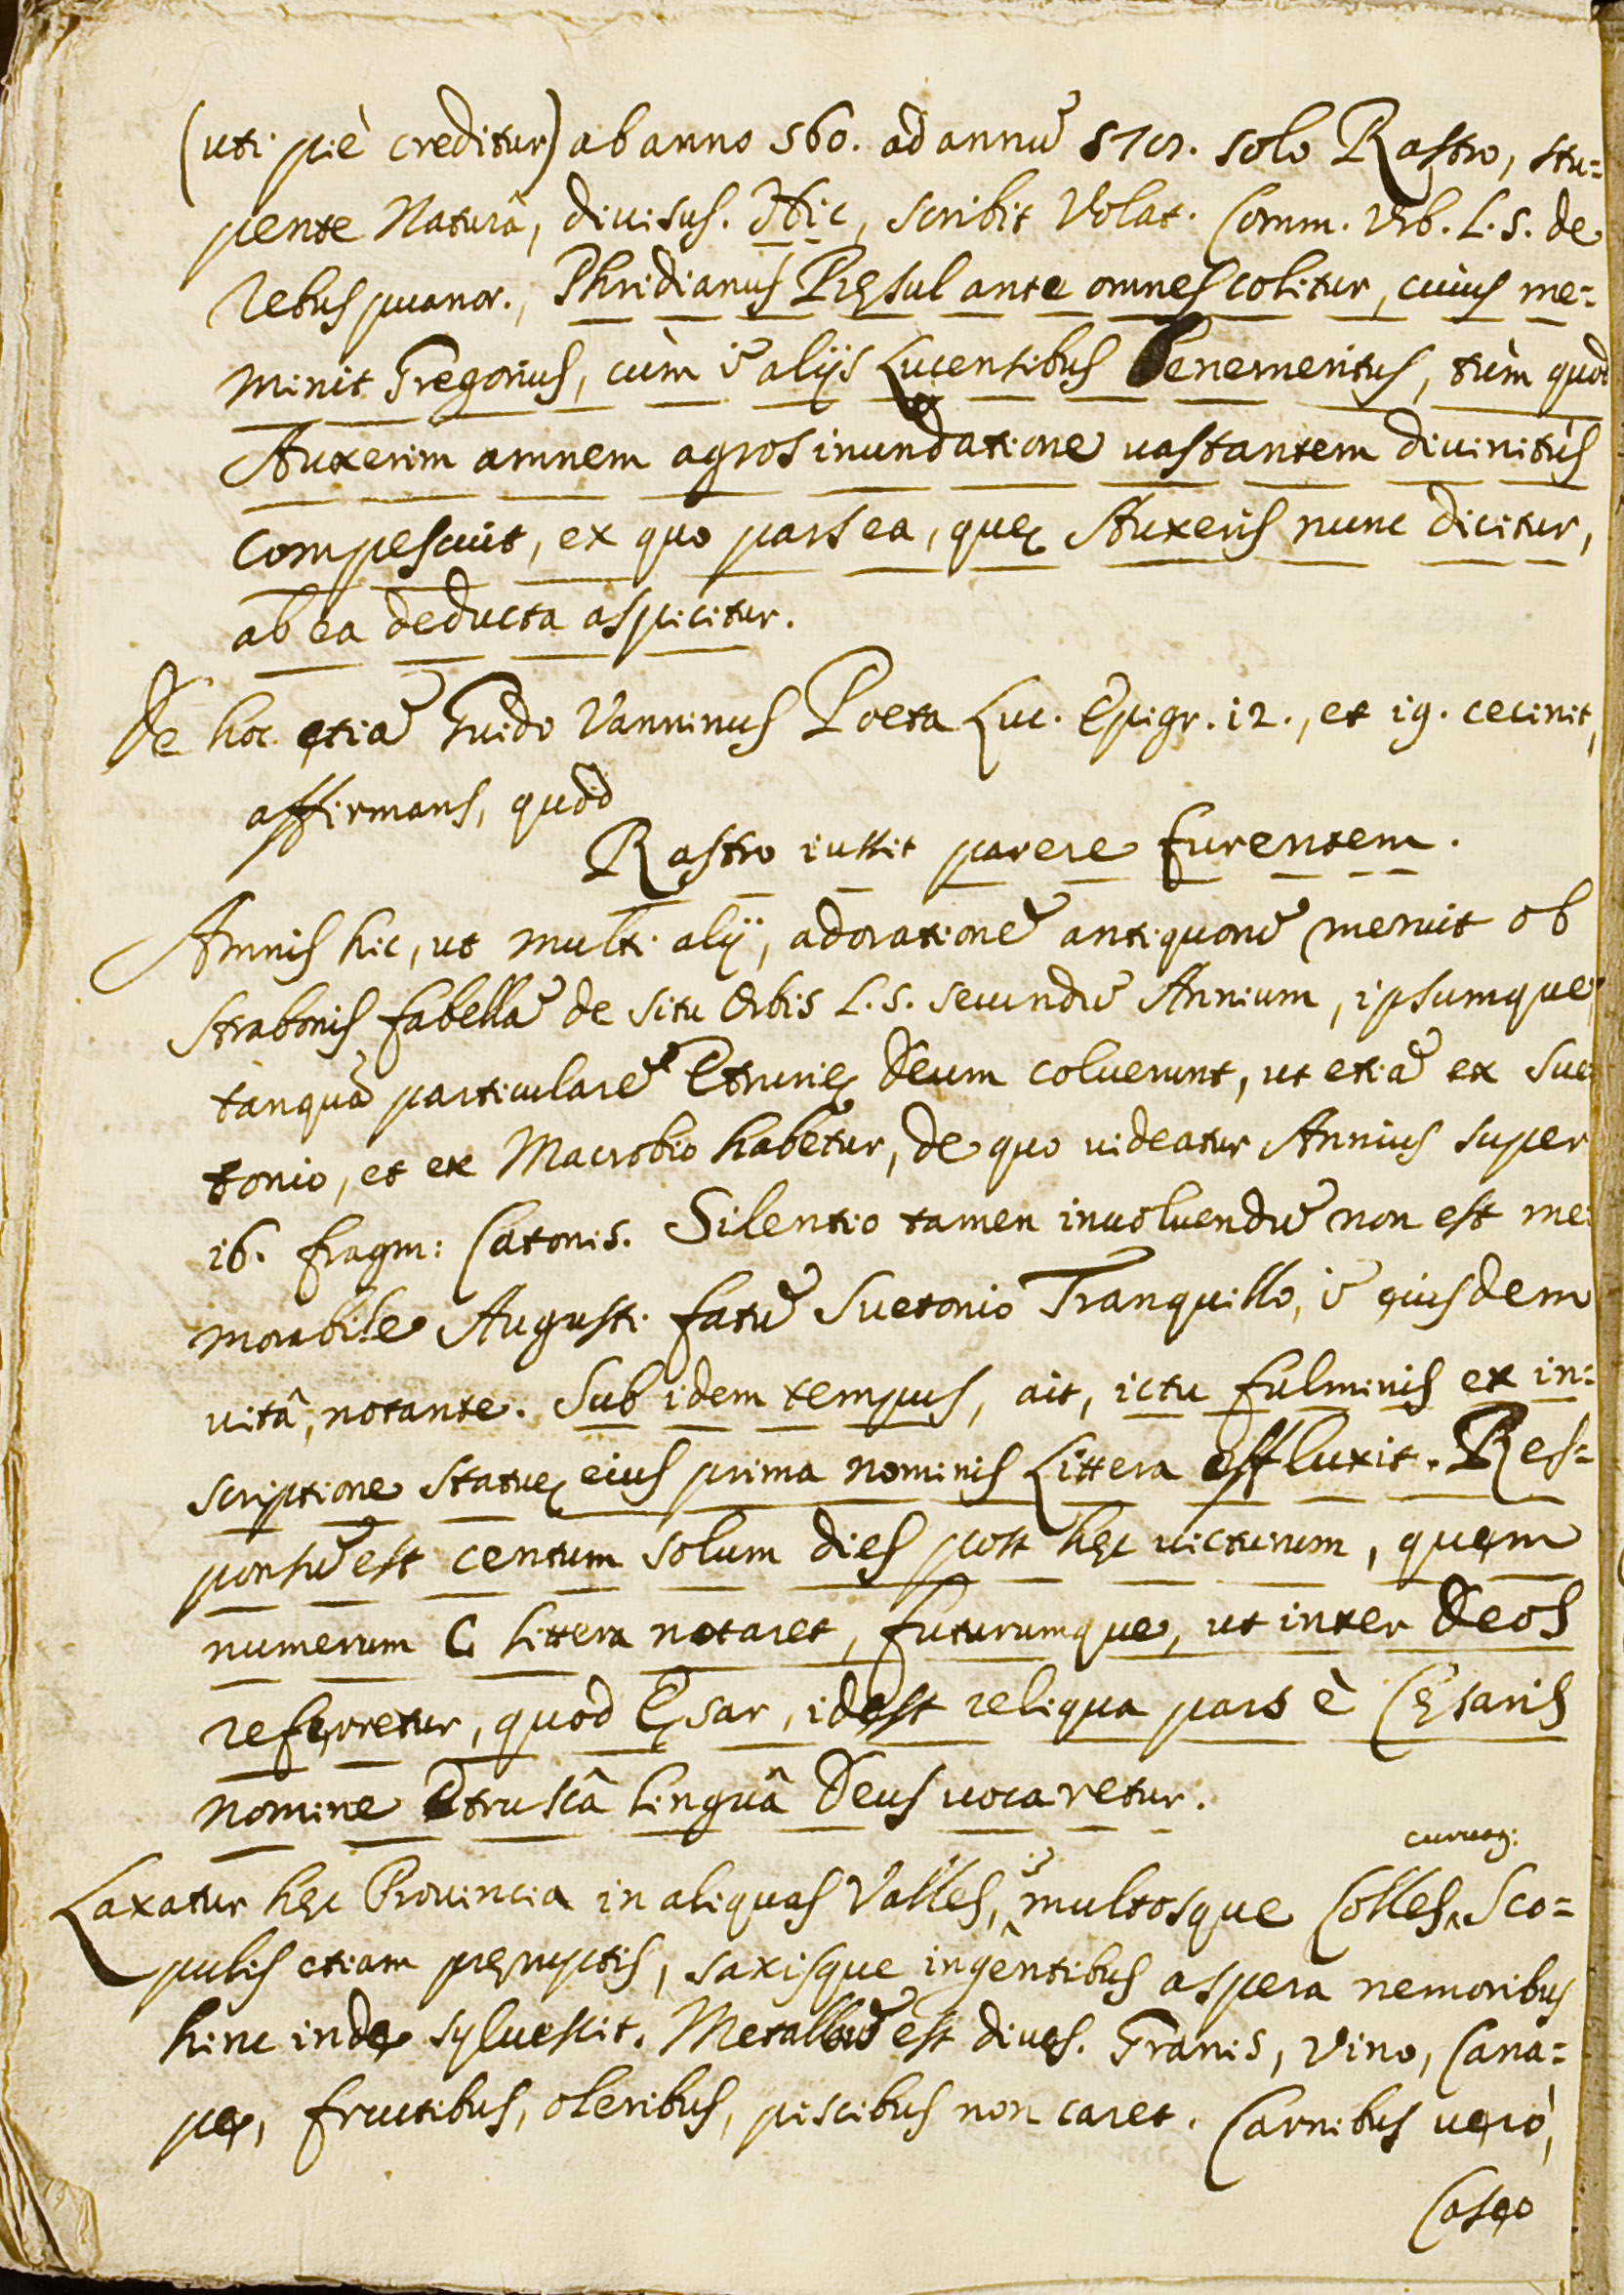 (uti piè creditur) ab anno 560. ad annũ 578. solo Rastro, stu=
pente Naturâ, diuisus. Hic, scribit Volat. Comm. Vrb. L. 5. de
rebus puanor., Phridianus Pręsul ante omnes colitur, cuius me=
minit Gregorius, cùm ĩ alijs Lucensibus benemeritus, tùm quod
Auxerim amnem agros inundatione uastantem diuinitùs
compescuit, ex quo pars ea, quę Auxeris nunc dicitur,
ab ea deducta aspicitur.
De hoc etiã Guido Vanninus Poeta Luc. Epigr. 12., et 19. cecinit,
affirmans, quòd
Rastro iussit parere furentem.
Amnis hic, ut multi alij, adorationẽ antiquorũ meruit ob
Strabonis fabellã de situ Orbis L. 5. secundũ Annium, ipsumque
tanquã particularẽ Etrurię Deum coluerunt, ut etiã ex Sue
tonio, et ex Macrobio habetur, de quo uideatur Annius super
16. fragm: Catonis. Silentio tamen inuoluendũ non est me
morabile Augusti fatũ Suetonio Tranquillo, ĩ eiusdem
uitâ, notante. Sub idem tempus, ait, ictu fulminis ex in=
scriptione statuę eius prima nominis Littera effluxit. Res=
ponsũ est centum solum dies post hęc uicturum, quem
numerum C littera notaret, futurumque, ut inter Deos
referretur, quod Ęsar, idest reliqua pars è Cęsaris
nomine Etruscâ linguâ Deus uocaretur.
curuaę:
Laxatur hęc Prouincia in aliquas Valles, ĩ multosque Colles, Sco=
pulis etiam pręruptis, saxisque ingentibus aspera nemoribus
hinc inde syluescit. Metallorũ est diues. Granis, Vino, Cana=
pe, fructibus, oleribus, piscibus non caret. Carnibus uerò,
Caseo